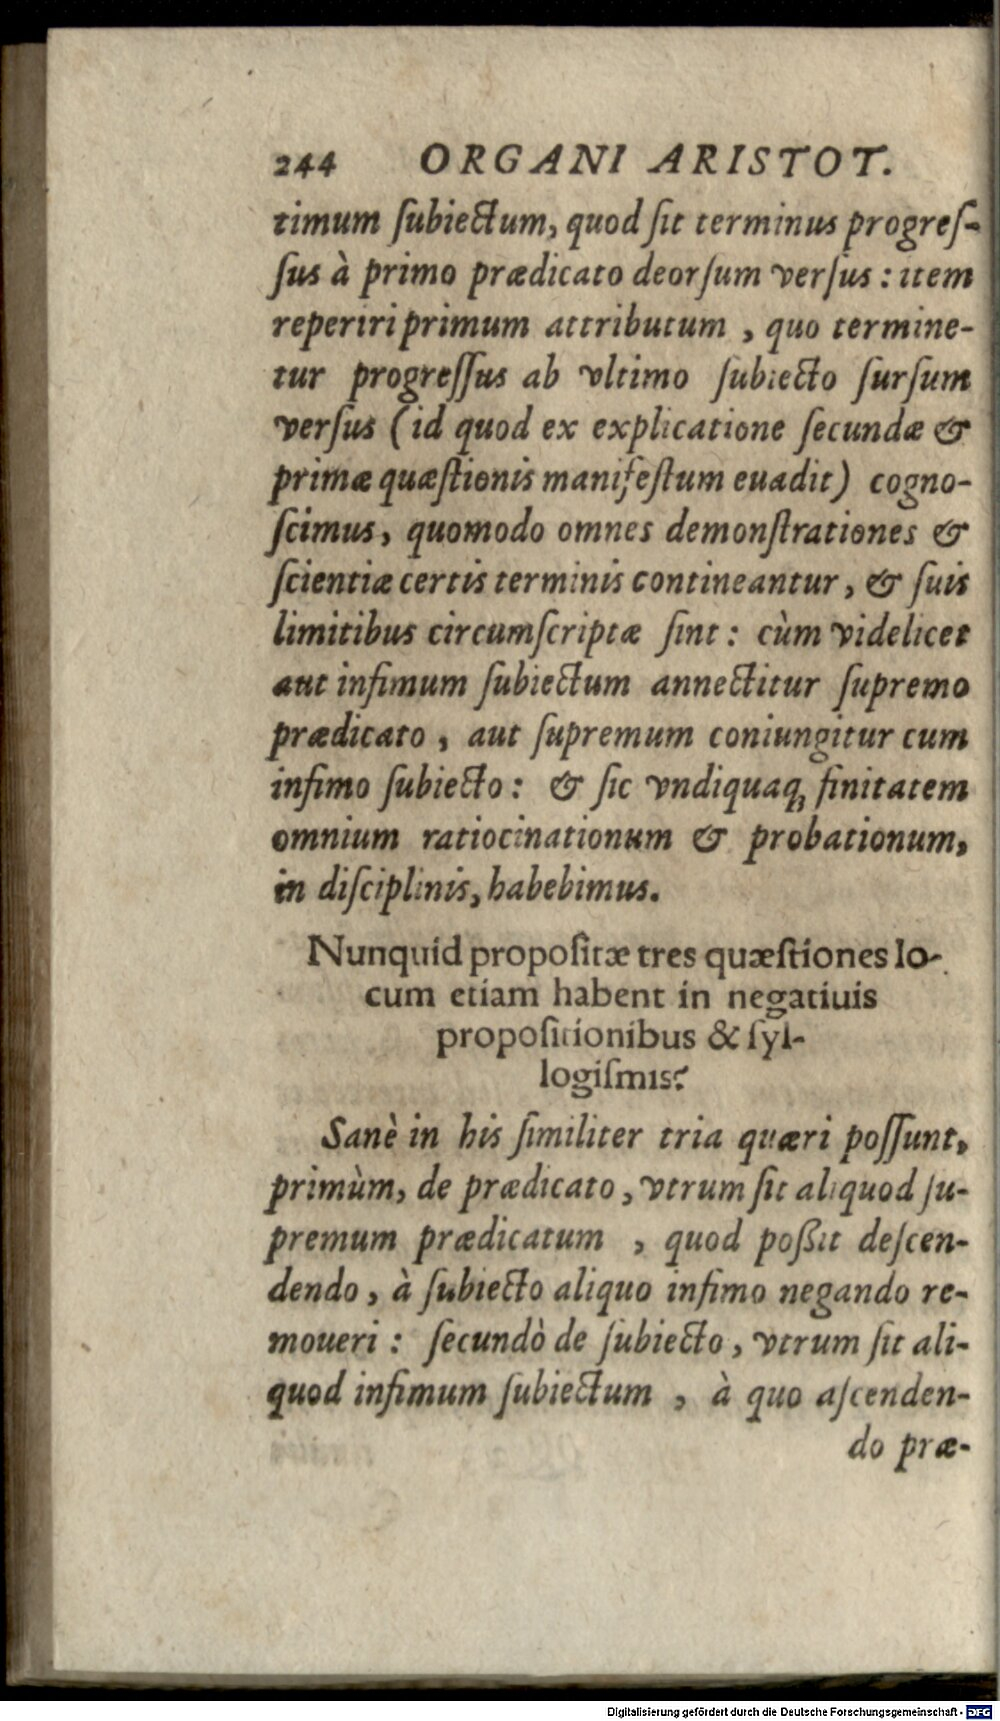 244 ORGANI ARISTOT.
timum ſubiectum, quod ſit terminus progreſ-
ſus à primo prædicato deorſum verſus: item
reperiri primum attributum, quo termine-
tur progreſſus ab vltimo ſubiecto ſurſum
verſus (id quod ex explicatione ſecundæ &
primæ quæſtionis manifeſtum euadit) cogno-
ſcimus, quomodo omnes demonſtrationes &
ſcientiæ certis terminis contineantur, & ſuis
limitibus circumſcriptæ ſint: cùm videlicet
aut infimum ſubiectum annectitur ſupremo
prædicato, aut ſupremum coniungitur cum
infimo ſubiecto: & ſic vndiquaq; finitatem
omnium ratiocinationum & probationum,
in diſciplinis, habebimus.
Nunquid propoſitæ tres quæſtiones lo-
cum etiam habent in negatiuis
propoſitionibus & ſyl-
logiſmis?
Sanè in his ſimiliter tria quæri poſſunt,
primùm, de prædicato, vtrum ſit aliquod ſu-
premum prædicatum, quod poßit deſcen-
dendo, à ſubiecto aliquo infimo negando re-
moueri: ſecundò de ſubiecto, vtrum ſit ali-
quod infimum ſubiectum, à quo aſcenden-
do præ-
Digitalisierung gefördert durch die Deutsche Forschungsgemeinschaft - DFG